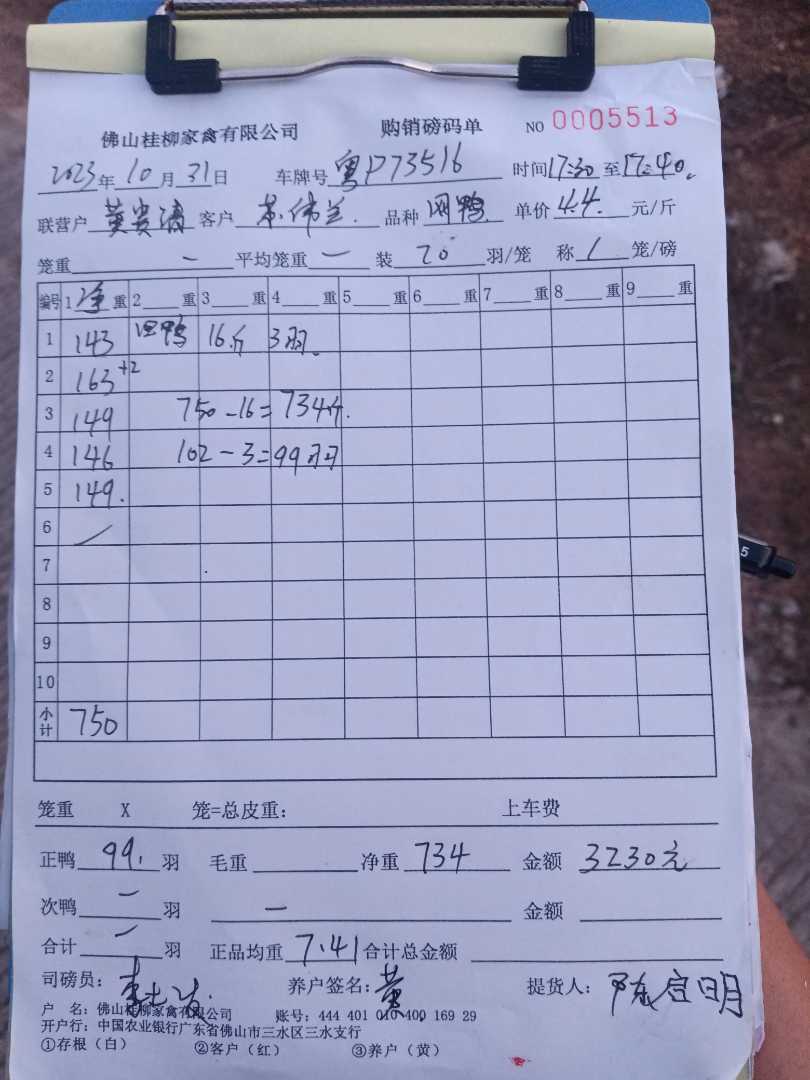 佛山桂柳家禽有限公司 购销磅码单 NO 0005513
2023年10月31日 车牌号 粤P73516 时间17:30至17:40
联营户 黄贵清 客户 伟兰 品种 网鸭 单价 4.4 元/斤
笼重 一 平均笼重 一 装 20 羽/笼 称 1 笼/磅
编号 1净重 2重 3重 4重 5重 6重 7重 8重 9重
1 143 鸭 16斤 3羽
2 163+2
3 149 750-16=734斤
4 146 102-3=99羽
5 149
6
7
8
9
10
小计 750
笼重 X 笼=总皮重: 上车费
正鸭 99 羽 毛重 净重 734 金额 3230元
次鸭 一 羽 一 金额
合计 一 羽 正品均重 7.41 合计总金额
司磅员: 养户签名: 黄 提货人: 陈宜明
户 名: 佛山桂柳家禽有限公司 账号: 444 401 010 400 169 29
开户行: 中国农业银行广东省佛山市三水区三水支行
①存根(白) ②客户(红) ③养户(黄)
5